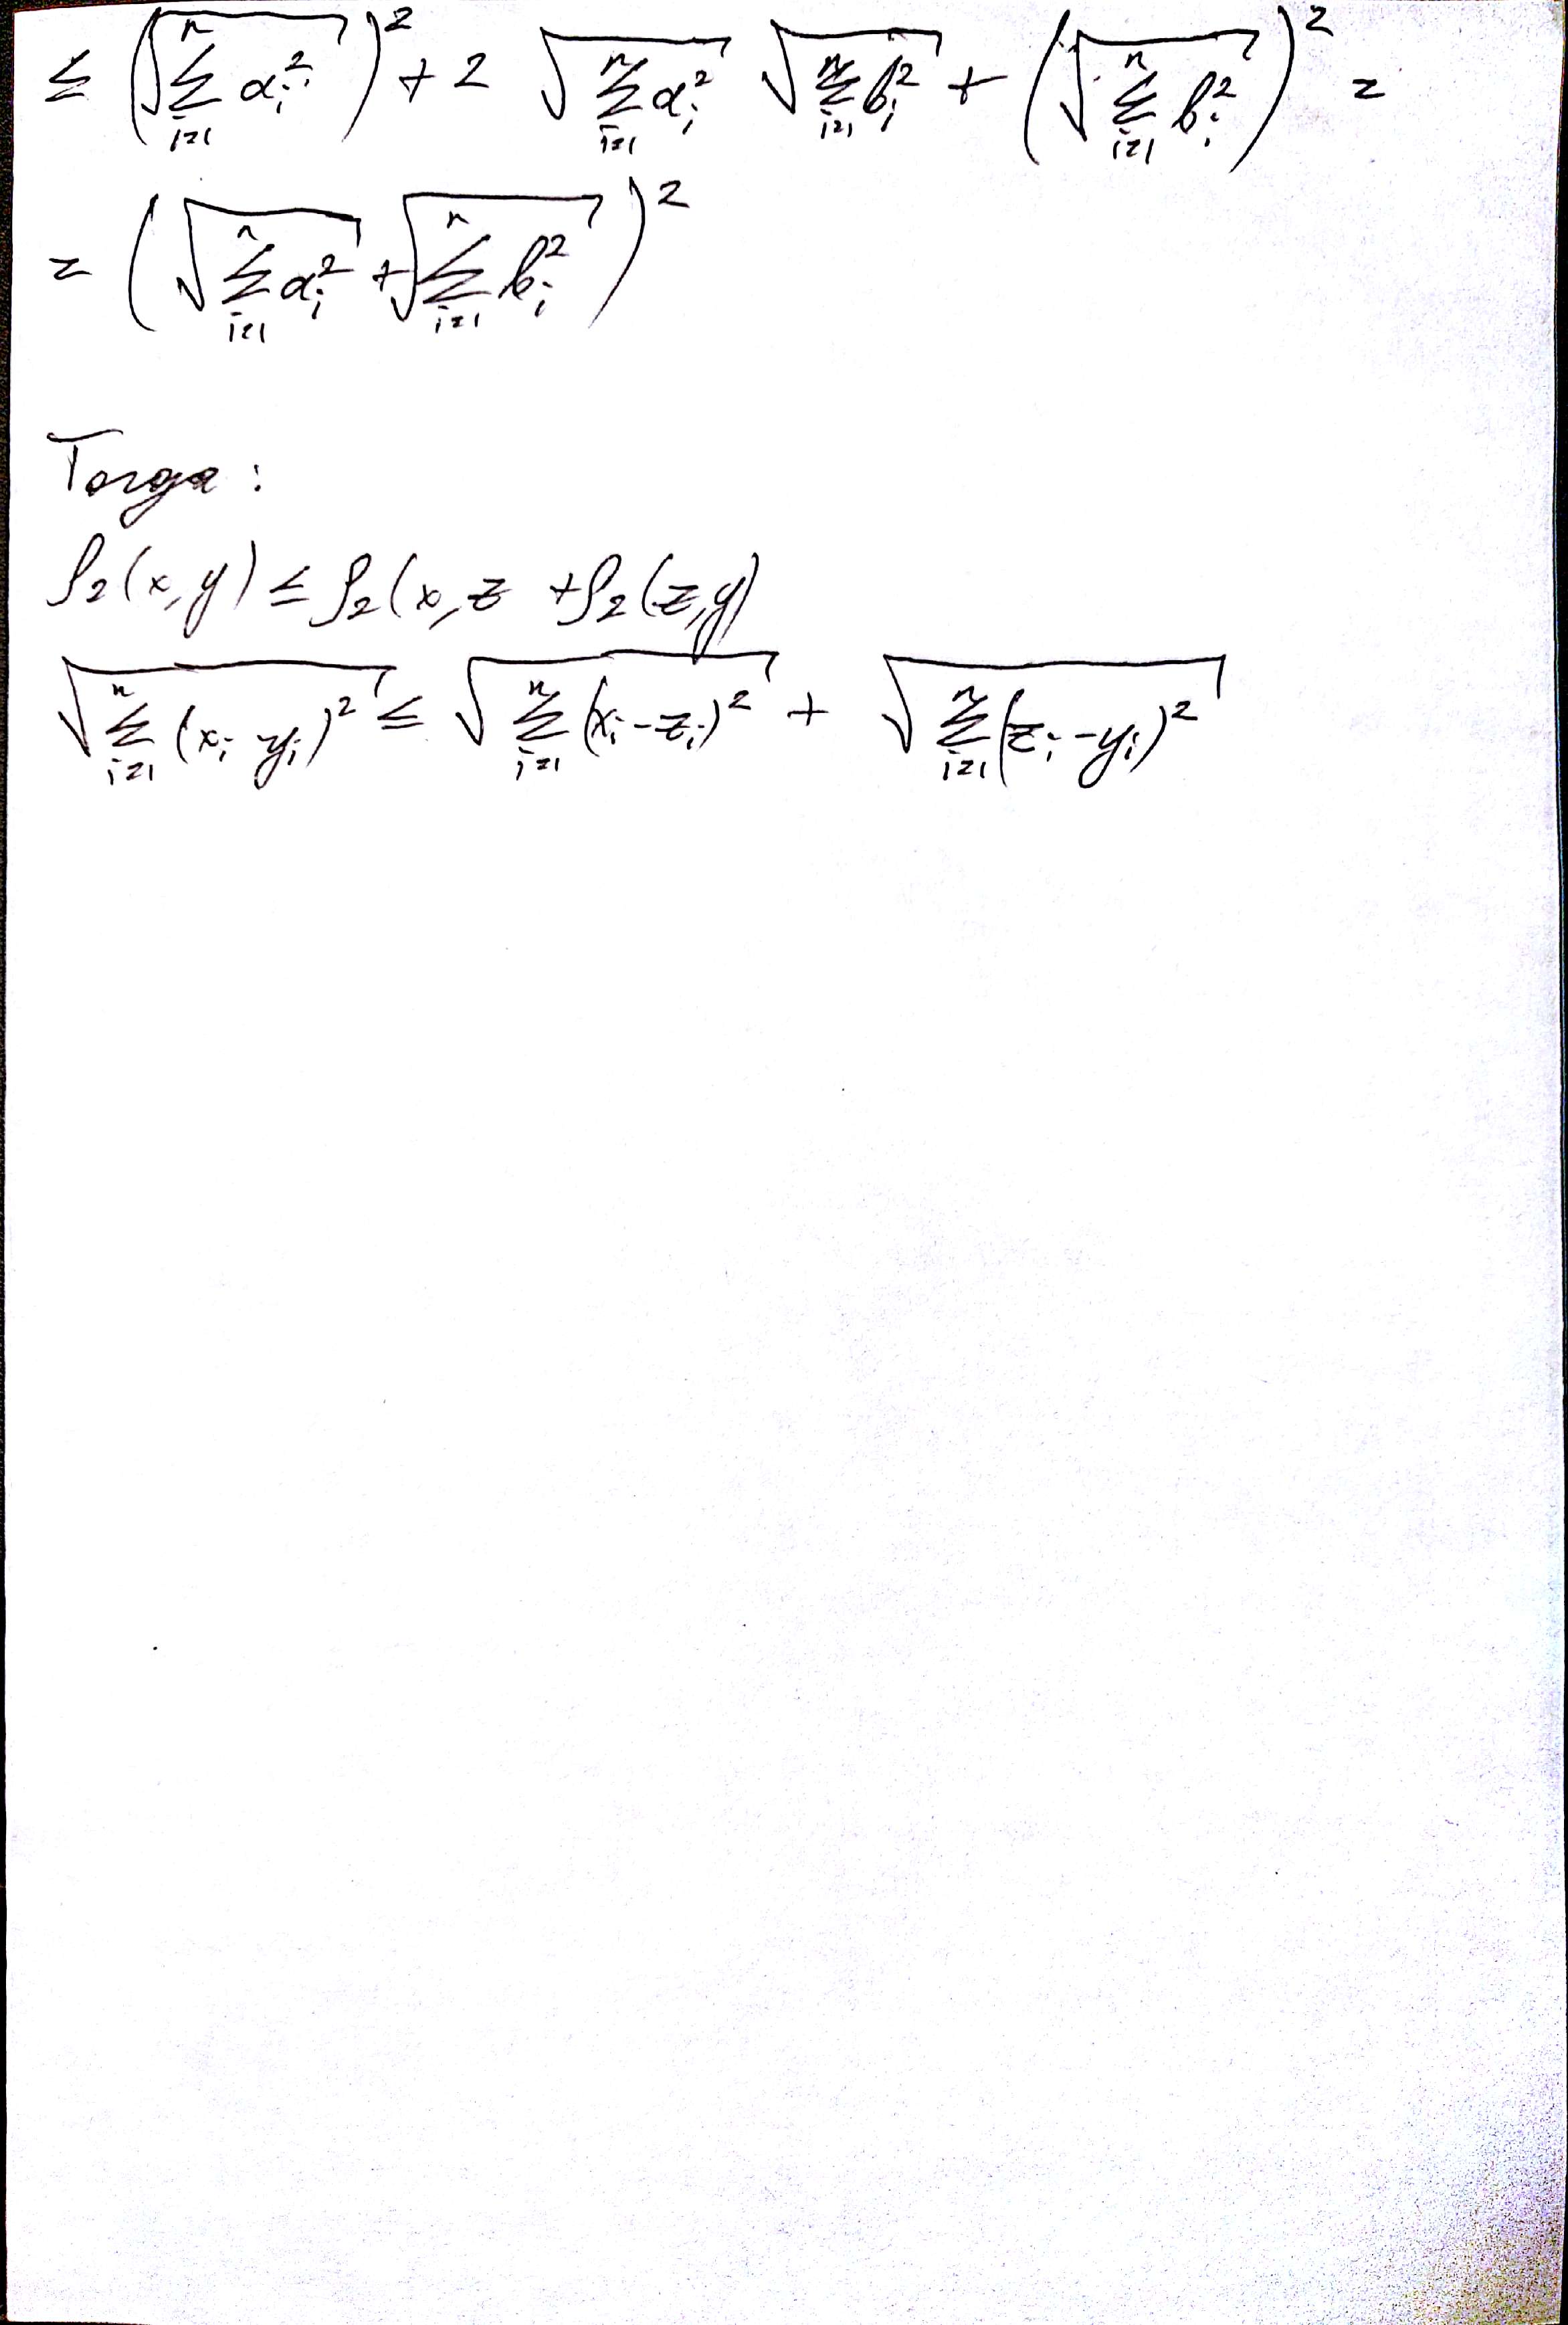 ≤ (√(∑_{i=1}^{n} a_i^2))^2 + 2 √(∑_{i=1}^{n} a_i^2) √(∑_{i=1}^{n} b_i^2) + (√(∑_{i=1}^{n} b_i^2))^2 =
= (√(∑_{i=1}^{n} a_i^2) + √(∑_{i=1}^{n} b_i^2))^2
Тогда:
ρ_2(x,y) ≤ ρ_2(x,z + ρ_2(z,y)
√(∑_{i=1}^{n} (x_i - y_i)^2) ≤ √(∑_{i=1}^{n} (x_i - z_i)^2) + √(∑_{i=1}^{n} (z_i - y_i)^2)